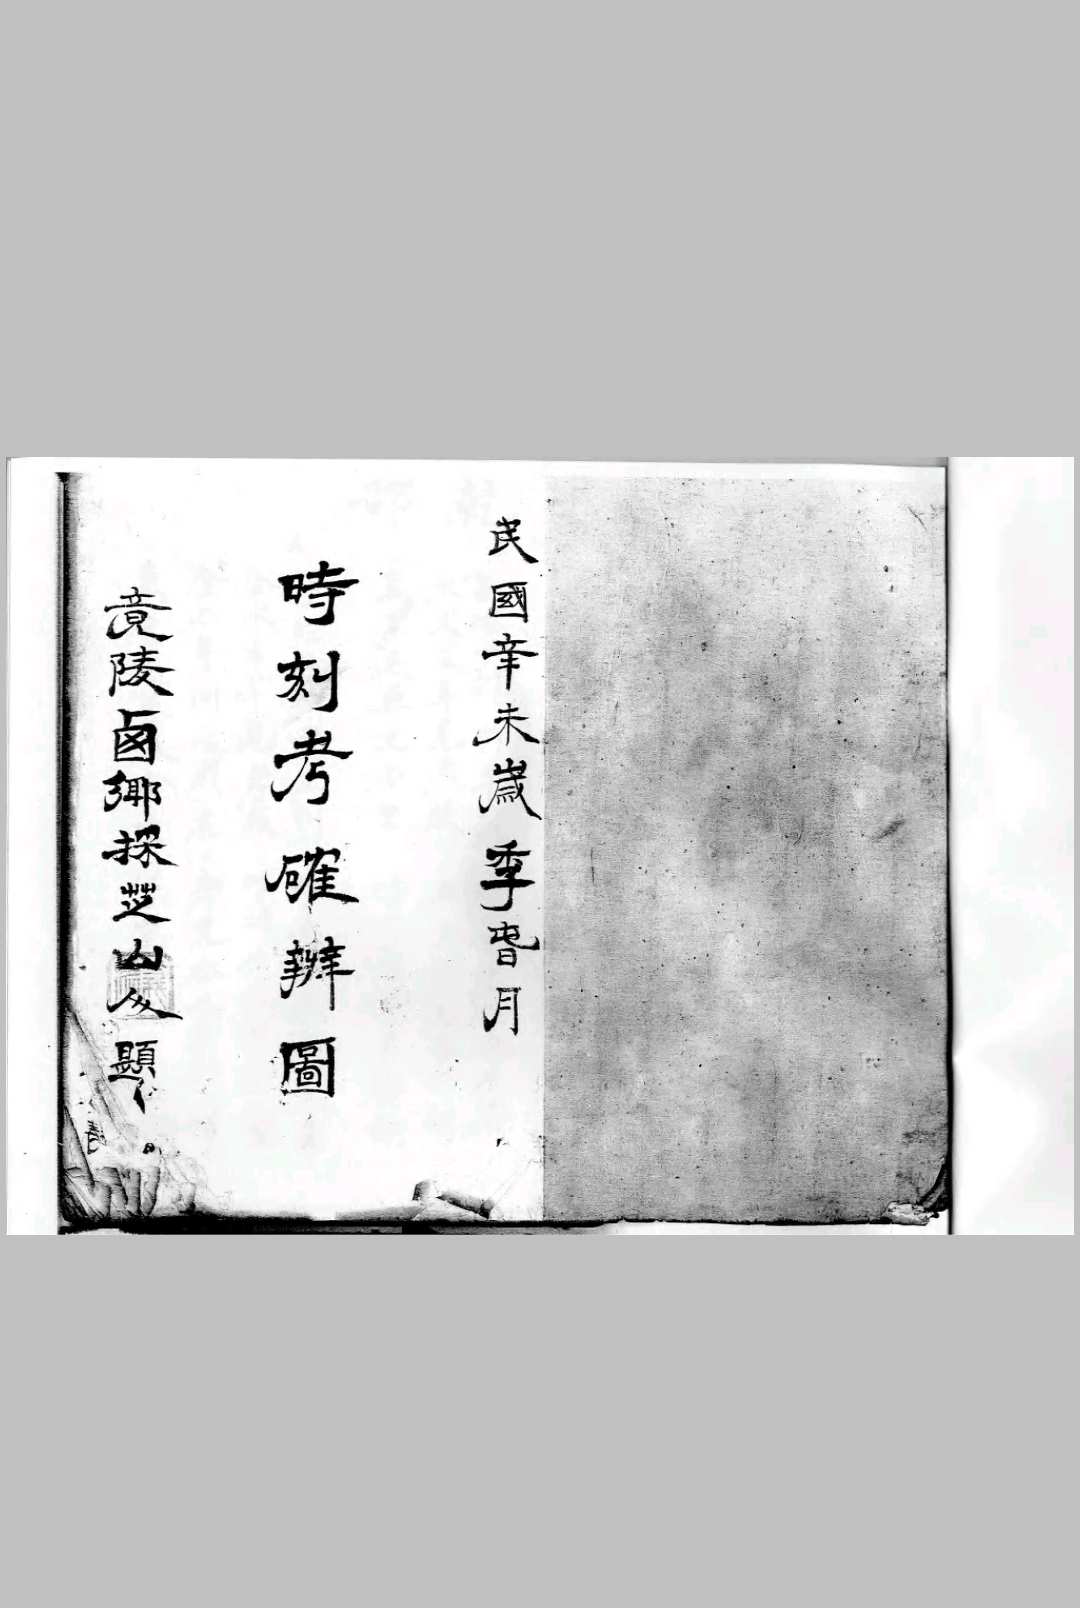 民國辛未歲季春月
時刻考確辦圖
竟陵鹵鄉採芝山人題